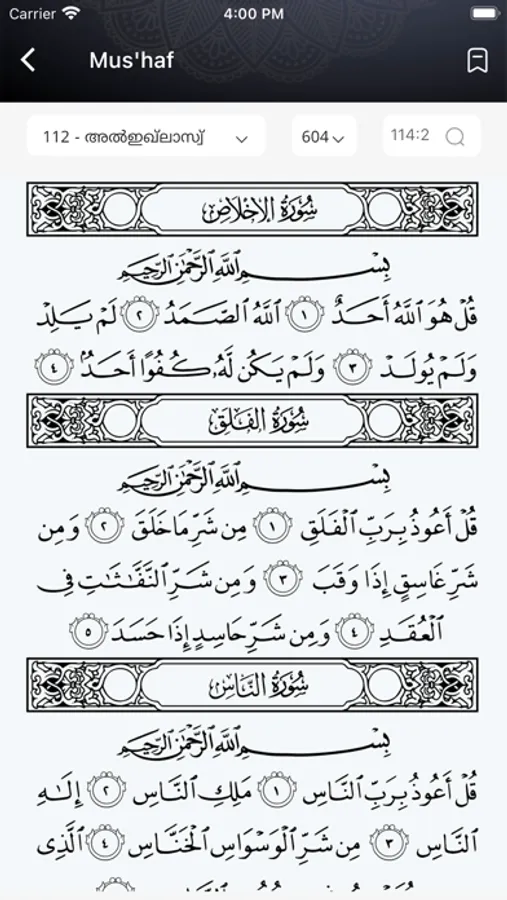 Carrier 4:00 PM
Mus'haf
112 - അൽഇഖ്‌ലാസ്വ് 604 114:2
سُورَةُ الإِخْلَاصِ
بِسْمِ ٱللَّهِ ٱلرَّحْمَٰنِ ٱلرَّحِيمِ
قُلْ هُوَ ٱللَّهُ أَحَدٌ ١ ٱللَّهُ ٱلصَّمَدُ ٢ لَمْ يَلِدْ
وَلَمْ يُولَدْ ٣ وَلَمْ يَكُن لَّهُۥ كُفُوًا أَحَدٌۢ ٤
سُورَةُ الفَلَقِ
بِسْمِ ٱللَّهِ ٱلرَّحْمَٰنِ ٱلرَّحِيمِ
قُلْ أَعُوذُ بِرَبِّ ٱلْفَلَقِ ١ مِن شَرِّ مَا خَلَقَ ٢ وَمِن
شَرِّ غَاسِقٍ إِذَا وَقَبَ ٣ وَمِن شَرِّ ٱلنَّفَّٰثَٰتِ فِى
ٱلْعُقَدِ ٤ وَمِن شَرِّ حَاسِدٍ إِذَا حَسَدَ ٥
سُورَةُ النَّاسِ
بِسْمِ ٱللَّهِ ٱلرَّحْمَٰنِ ٱلرَّحِيمِ
قُلْ أَعُوذُ بِرَبِّ ٱلنَّاسِ ١ مَلِكِ ٱلنَّاسِ ٢ إِلَٰهِ
ٱلنَّاسِ ٣ مِن شَرِّ ٱلْوَسْوَاسِ ٱلْخَنَّاسِ ٤ ٱلَّذِى